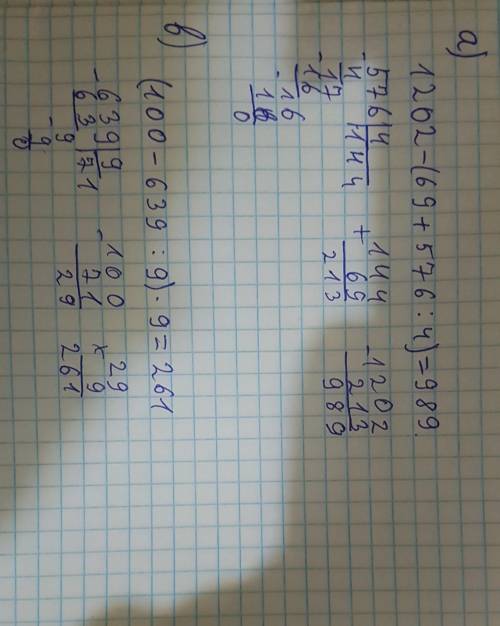 а)
1202-(69+576:4)=989.
576|4
-4 144
17
-16
16
-16
0
144
+ 69
213
-1202
213
989
в)
(100-639:9)·9=261
-639|9
63 71
-9
9
0
-100
71
29
×29
9
261